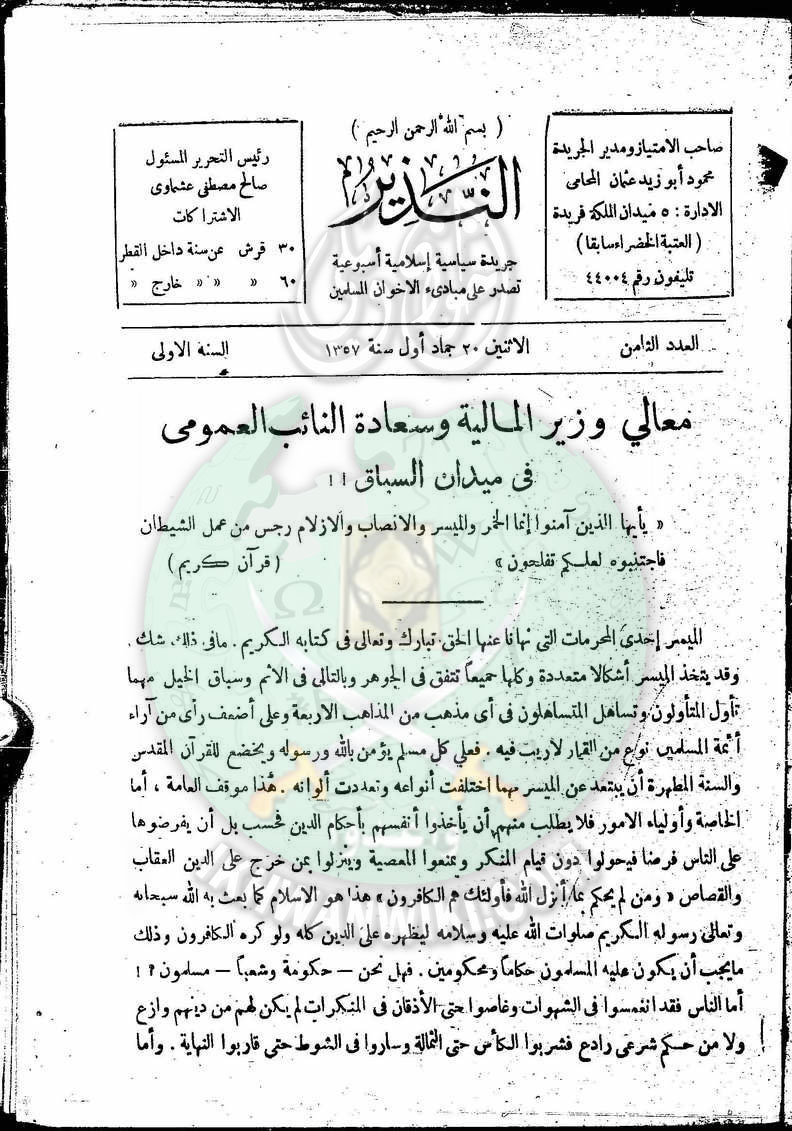 ( بسم الله الرحمن الرحيم )
النذير
جريدة سياسية إسلامية أسبوعية
تصدر على مبادىء الاخوان المسلمين
صاحب الامتياز ومدير الجريدة
محمود أبو زيد عثمان المحامى
الادارة : ٥ ميدان الملكة فريدة
( العتبة الخضراء سابقا )
تليفون رقم ٤٤٠٠٤
رئيس التحرير المسئول
صالح مصطفى عشماوى
الاشتراكات
٣٠ قرش عن سنة داخل القطر
٦٠ » » » خارج »
العدد الثامن
الاثنين ٢٠ جماد أول سنة ١٣٥٧
السنة الاولى
معالي وزير المالية وسعادة النائب العمومى
فى ميدان السباق !!
« يأيها الذين آمنوا إنما الخمر والميسر والانصاب والازلام رجس من عمل الشيطان
فاجتنبوه لعلكم تفلحون » ( قرآن كريم )
الميسر إحدى المحرمات التى نهانا عنها الحق تبارك وتعالى فى كتابه الكريم . مافى ذلك شك .
وقد يتخذ الميسر أشكالا متعددة وكلها جميعاً تتفق فى الجوهر وبالتالى فى الاثم وسباق الخيل مهما
تأول المتأولون وتساهل المتساهلون فى أى مذهب من المذاهب الاربعة وعلى أضعف رأى من آراء
أئمة المسلمين نوع من القمار لاريب فيه . فعلي كل مسلم يؤمن بالله ورسوله ويخضع للقرآن المقدس
والسنة المطهرة أن يبتعد عن الميسر مهما اختلفت أنواعه وتعددت ألوانه . هذا موقف العامة ، أما
الخاصة وأولياء الامور فلا يطلب منهم أن يأخذوا أنفسهم بأحكام الدين فحسب بل أن يفرضوها
على الناس فرضا فيحولوا دون قيام المنكر ويمنعوا المعصية وينزلوا بمن خرج على الدين العقاب
والقصاص « ومن لم يحكم بما أنزل الله فأولئك هم الكافرون » هذا هو الاسلام كما بعث به الله سبحانه
وتعالى رسوله الكريم صلوات الله عليه وسلامه ليظهره على الدين كله ولو كره الكافرون وذلك
مايجب أن يكون عليه المسلمون حكاما ومحكومين . فهل نحن – حكومة وشعباً – مسلمون ؟ !
أما الناس فقد انغمسوا فى الشهوات وغاصوا حتى الأذقان فى المنكرات لم يكن لهم من دينهم وازع
ولا من حكم شرعى رادع فشربوا الكأس حتى الثمالة وساروا فى الشوط حتى قاربوا النهاية . وأما
IKHWANWIKI.COM